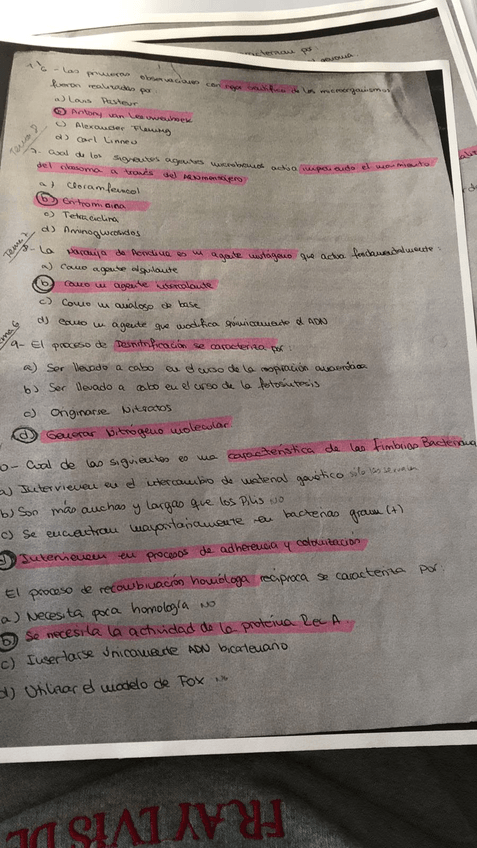 caracterizan por
6 - Las primeras observaciones con rigor científico de los microorganismos
fueron realizadas por
a) Louis Pasteur
b) Antony van Leeuwenhoek
c) Alexander Fleming
d) Carl Linneo
Tema 8
7. Cual de los siguientes agentes microbianos actúa impidiendo el movimiento
del ribosoma a través del ARN mensajero
a) Cloramfenicol
b) Eritromicina
c) Tetraciclina
d) Aminoglucósidos
Tema 7
8- La naranja de Acridina es un agente mutágeno que actua fundamentalmente:
a) Como agente alquilante
b) Como un agente intercalante
c) Como un análogo de base
d) Como un agente que modifica químicamente el ADN
Tema 6
9- El proceso de Desnitrificación se caracteriza por:
a) Ser llevado a cabo en el curso de la respiración anaerobica
b) Ser llevado a cabo en el curso de la fotosíntesis
c) Originarse Nitratos
d) Generar Nitrógeno molecular.
0- Cual de las siguientes es una característica de las Fimbrias Bacteriana
a) Intervienen en el intercambio de material genético sólo los sexuales
b) Son más anchas y largas que los Pilus NO
c) Se encuentran mayoritariamente en bacterias gram (+)
d) Intervienen en procesos de adherencia y colonización
El proceso de recombinación homóloga recíproca se caracteriza por:
a) Necesita poca homología NO
b) Se necesita la actividad de la proteína Rec A.
c) Insertarse únicamente ADN bicatenario
d) Utilizar el modelo de Fox NO
FRAY LVIS DE